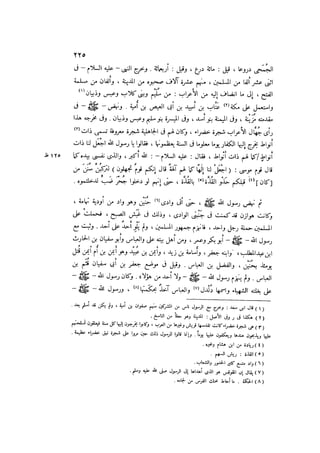 ٢٢٥
الجُمَحِى دروعا ، قيل : مائة درع ، وقيل : أربعمائة . وخرج النبى – عليه السلام – فى
اثنى عشر ألفا من المسلمين ، منهم عشرة آلاف صحبوه من المدينة ، وألفان من مسلمة
الفتح ، إلى ما انضاف إليه من الأعراب : من سُليم وبنى كلاب وعبس وذبيان(١)
واستعمل على مكة(٢) عتَّاب بن أسيد بن أبى العيص بن أمية . ونهض – ﷺ – وفى
مقدمته مُزَينة ، وفى الميمنة بنو أسد ، وفى الميسرة بنو سليم وعبس وذبيان . وفى مخرجه هذا
رأى جُهّال الأعراب شجرة خضراء ، وكان لهم فى الجاهلية شجرة معروفة تسمى ذات(٣)
أنواط يخرج إليها الكفار يوما معلوما فى السنة يعظمونها ، فقالوا يا رسول الله اجعل لنا ذات
أنواط كما لهم ذات أنواط ، فقال : عليه السلام – : الله أكبر ، والذى نفسى بيده كما
١٢٥ ظ
قال قوم موسى : ( اجْعَل لنا إلٰهًا كما لهم آلهةٌ قال إنكم قومٌ تجهلون ) لتركَبُنَّ سَنَن من
[كان](٤) قبلكم حَذْوَ القُذَّة(٥) بالقُذَّة ، حتى إنهم لو دخلوا جُحْر ضَب لدخلتموه .
ثم نهض رسول الله – ﷺ – حتى أتى وادى(٦) حُنَيْن وهو واد من أودية تهامة ،
وكانت هوازن قد كمنت فى جَنْبَتَى الوادى ، وذلك فى غَبَش الصبح ، فحملت على
المسلمين حملة رجل واحد ، فانهزم جمهور المسلمين ، ولم يَلْوِ أحدٌ على أحد . وثبت مع
رسول الله – ﷺ – أبو بكر وعمر ، ومن أهل بيته على والعباس وأبو سفيان بن الحارث
ابن عبد المطلب، وابنه جعفر ، وأسامة بن زيد ، وأيمن بن عُبيد وهو أيمن بن أم أيمن قُتل
يومئذ بحُنَيْن ، والفضل بن العباس . وقيل فى موضع جعفر بن أبى سفيان قُثَم بن
العباس . ولم ينهزم رسول الله – ﷺ – ولا أحد من هؤلاء . وكان رسول الله – ﷺ –
على بغلته الشهباء واسمها دُلْدُل(٧) والعباس آخذٌ بحَكَمتها(٨) ، ورسول الله – ﷺ –
(١) قال ابن سعد : وخرج مع الرسول ناس من المشركين منهم صفوان بن أمية ، ولم يكن قد أسلم بعد .
(٢) هكذا فى ر وفى الأصل : المدينة وهو خطأ من الناسخ .
(٣) هى شجرة خضراء كانت تقدسها قريش وغيرها من العرب ، وكانوا يخرجون إليها كل سنة فيعلقون أسلحتهم
(٤) زيادة من ابن هشام وغيره .
(٥) القذة : ريش السهم .
(٦) واد متسع كثير الحدور والشعاب .
(٧) يقال إن المقوقس هو الذى أهداها إلى الرسول صلى الله عليه وسلم .